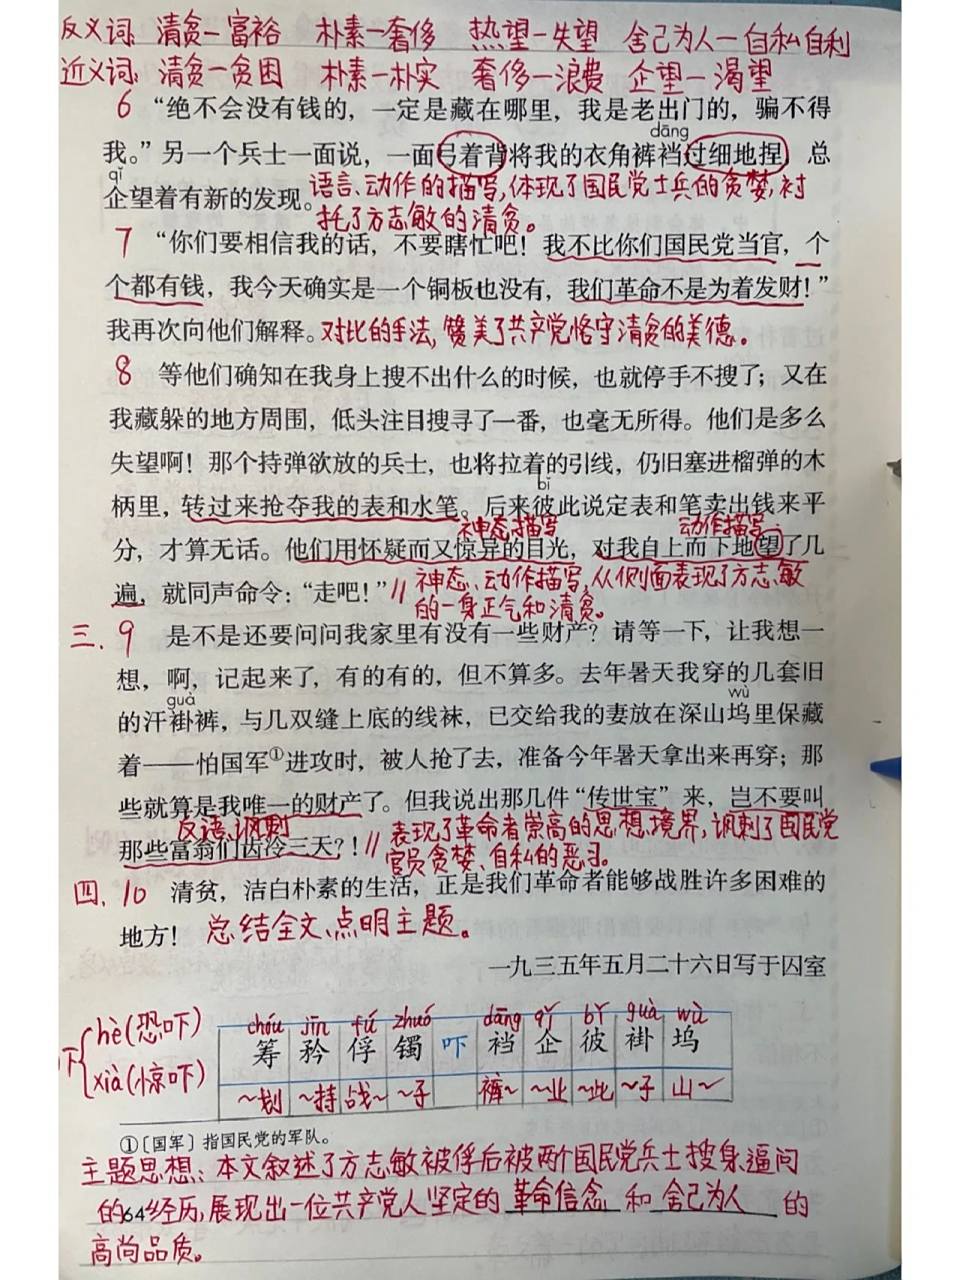 反义词: 清贫—富裕 朴素—奢侈 热望—失望 舍己为人—自私自利
近义词: 清贫—贫困 朴素—朴实 奢侈—浪费 企望—渴望
6 “绝不会没有钱的，一定是藏在哪里，我是老出门的，骗不得
dāng
我。”另一个兵士一面说，一面弓着背将我的衣角裤裆过细地捏，总
qǐ
企望着有新的发现。语言、动作的描写，体现了国民党士兵的贪婪，衬
托了方志敏的清贫。
7 “你们要相信我的话，不要瞎忙吧！我不比你们国民党当官，个
个都有钱，我今天确实是一个铜板也没有，我们革命不是为着发财！”
我再次向他们解释。对比的手法，赞美了共产党恪守清贫的美德。
8 等他们确知在我身上搜不出什么的时候，也就停手不搜了；又在
我藏躲的地方周围，低头注目搜寻了一番，也毫无所得。他们是多么
失望啊！那个持弹欲放的兵士，也将拉着的引线，仍旧塞进榴弹的木
bǐ
柄里，转过来抢夺我的表和水笔。后来彼此说定表和笔卖出钱来平
神态描写 动作描写
分，才算无话。他们用怀疑而又惊异的目光，对我自上而下地望了几
遍，就同声命令：“走吧！”//神态、动作描写，从侧面表现了方志敏
的一身正气和清贫。
三、9 是不是还要问问我家里有没有一些财产？请等一下，让我想一
想，啊，记起来了，有的有的，但不算多。去年暑天我穿的几套旧
guà wù
的汗褂裤，与几双缝上底的线袜，已交给我的妻放在深山坞里保藏
着——怕国军①进攻时，被人抢了去，准备今年暑天拿出来再穿；那
些就算是我唯一的财产了。但我说出那几件“传世宝”来，岂不要叫
反语、讽刺
那些富翁们齿冷三天？！//表现了革命者崇高的思想境界，讽刺了国民党
官员贪婪、自私的恶习。
四、10 清贫，洁白朴素的生活，正是我们革命者能够战胜许多困难的
地方！ 总结全文，点明主题。
一九三五年五月二十六日写于囚室
吓 hè(恐吓)
xià(惊吓)
chóu jīn fú zhuó dāng qǐ bǐ guà wù
筹 矜 俘 镯 吓 裆 企 彼 褂 坞
~划 ~持 战~ ~子 裤~ ~业 ~此 ~子 山~
①〔国军〕指国民党的军队。
主题思想：本文叙述了方志敏被俘后被两个国民党兵士搜身、逼问
的经历，展现出一位共产党人坚定的 革命信念 和 舍己为人 的
64
高尚品质。